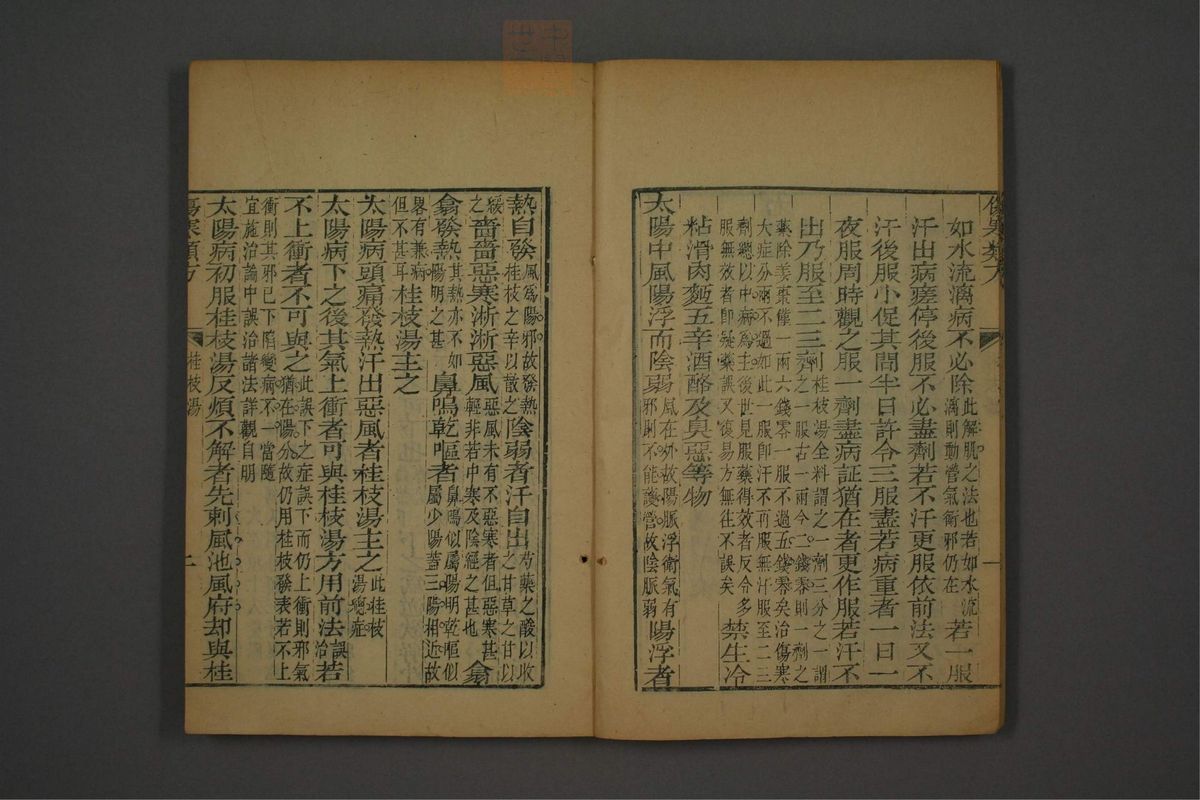 傷寒類方
一
如水流漓病不必除此解肌之法也若如水流
漓則動營氣衛邪仍在若一服
汗出病瘥停後服不必盡劑若不汗更服依前法又不
汗後服小促其間半日許令三服盡若病重者一日一
夜服周時觀之服一劑盡病証猶在者更作服若汗不
出乃服至二三劑桂枝湯全料謂之一劑三分之一謂
之一服古一兩今二錢零則一劑之
藥除姜棗僅一兩六錢零一服不過五錢零矣治傷寒
大症分兩不過如此一服即汗不再服無汗服至二三
劑總以中病為主後世見服藥得效者反令多
服無效者即疑藥誤又復易方無往不誤矣禁生冷
粘滑肉麵五辛酒酪及臭惡等物
太陽中風陽浮而陰弱風在外故陽脈浮衛氣有
邪則不能護營故陰脈弱陽浮者
熱自發風為陽邪故發熱
桂枝之辛以散之陰弱者汗自出芍藥之酸以收
之甘草之甘以
緩
之嗇嗇惡寒淅淅惡風惡風未有不惡寒者但惡寒甚
輕非若中寒及陰經之甚也翕
翕發熱其熱亦不如
陽明之甚鼻鳴乾嘔者鼻鳴似屬陽明乾嘔似
屬少陽蓋三陽相近故
畧有兼病
但不甚耳桂枝湯主之
太陽病頭痛發熱汗出惡風者桂枝湯主之此桂枝
湯總症
太陽病下之後其氣上衝者可與桂枝湯方用前法誤
治若
不上衝者不可與之此誤下之症誤下而仍上衝則邪氣
猶在陽分故仍用桂枝發表若不上
衝則其邪已下陷變病不一當隨
宜施治論中誤治諸法詳觀自明
太陽病初服桂枝湯反煩不解者先刺風池風府却與桂
傷寒類方
桂枝湯